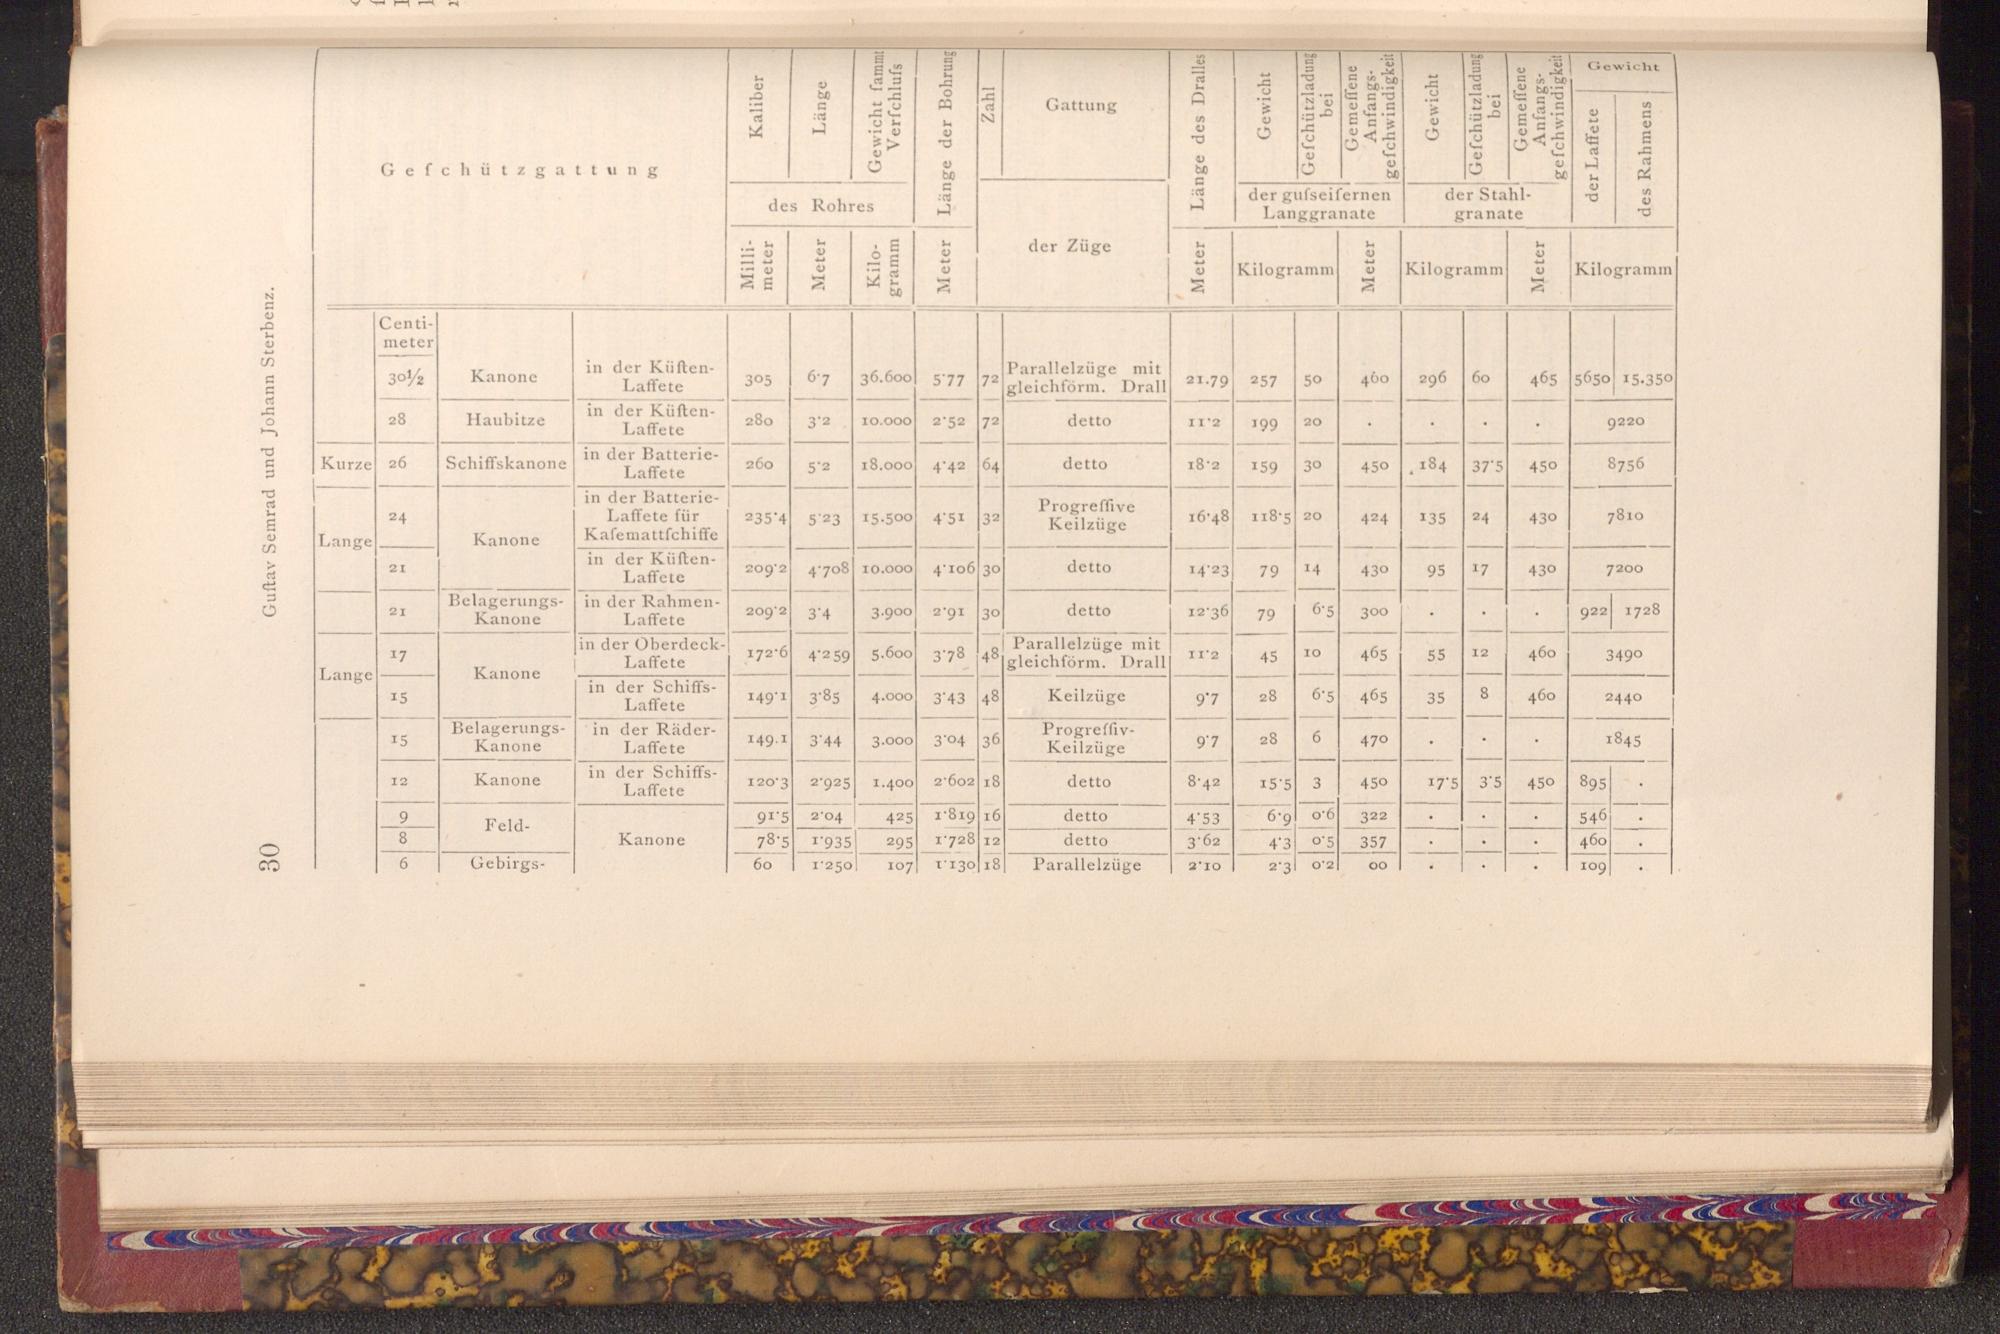 30
Guſtav Semrad und Johann Sterbenz.
Geſchützgattung
Kaliber
Länge
Gewicht ſammt
Verſchluſs
des Rohres
Länge der Bohrung
Zahl
Gattung
der Züge
Länge des Dralles
Gewicht
Geſchützladung
bei
Gemeſſene
Anfangs-
geſchwindigkeit
der guſseiſernen
Langgranate
Gewicht
Geſchützladung
bei
Gemeſſene
Anfangs-
geſchwindigkeit
der Stahl-
granate
Gewicht
der Laffete
des Rahmens
Milli-
meter
Meter
Kilo-
gramm
Meter
Meter
Kilogramm
Meter
Kilogramm
Meter
Kilogramm
Centi-
meter
30½ Kanone in der Küſten-
Laffete 305 6·7 36.600 5·77 72 Parallelzüge mit
gleichförm. Drall 21.79 257 50 460 296 60 465 5650 15.350
28 Haubitze in der Küſten-
Laffete 280 3·2 10.000 2·52 72 detto 11·2 199 20 . . . . 9220
Kurze 26 Schiffskanone in der Batterie-
Laffete 260 5·2 18.000 4·42 64 detto 18·2 159 30 450 184 37·5 450 8756
Lange 24 Kanone in der Batterie-
Laffete für
Kaſemattſchiffe 235·4 5·23 15.500 4·51 32 Progreſſive
Keilzüge 16·48 118·5 20 424 135 24 430 7810
21 in der Küſten-
Laffete 209·2 4·708 10.000 4·106 30 detto 14·23 79 14 430 95 17 430 7200
21 Belagerungs-
Kanone in der Rahmen-
Laffete 209·2 3·4 3.900 2·91 30 detto 12·36 79 6·5 300 . . . 922 1728
Lange 17 Kanone in der Oberdeck-
Laffete 172·6 4·259 5.600 3·78 48 Parallelzüge mit
gleichförm. Drall 11·2 45 10 465 55 12 460 3490
15 in der Schiffs-
Laffete 149·1 3·85 4.000 3·43 48 Keilzüge 9·7 28 6·5 465 35 8 460 2440
15 Belagerungs-
Kanone in der Räder-
Laffete 149.1 3·44 3.000 3·04 36 Progreſſiv-
Keilzüge 9·7 28 6 470 . . . 1845
12 Kanone in der Schiffs-
Laffete 120·3 2·925 1.400 2·602 18 detto 8·42 15·5 3 450 17·5 3·5 450 895 .
9 Feld- Kanone 91·5 2·04 425 1·819 16 detto 4·53 6·9 0·6 322 . . . 546 .
8 78·5 1·935 295 1·728 12 detto 3·62 4·3 0·5 357 . . . 460 .
6 Gebirgs- 60 1·250 107 1·130 18 Parallelzüge 2·10 2·3 0·2 00 . . . 109 .